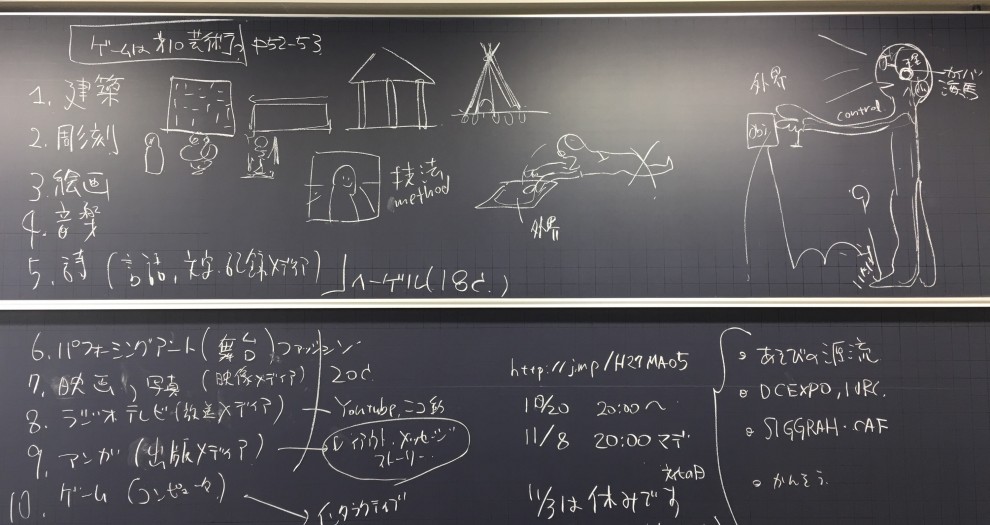 ゲームは第10芸術? P52-53
1. 建築
2. 彫刻
3. 絵画
4. 音楽
5. 詩 (言語, 文字・記録メディア) ヘーゲル(18C.)
技法
method
外界
外界
obj
control
海馬
6. パフォーミングアート (舞台) ファッション
7. 映画, 写真 (映像メディア) 20C.
8. ラジオテレビ (放送メディア) Youtube, ニコ動
9. マンガ (出版メディア) レイアウト・メッセージ ストーリー
10. ゲーム (コンピュータ)
インタラクティブ
http://j.mp/H27MA05
10/20 20:00〜
11/8 20:00マデ
文化の日
11/3は休みです
。あそびの源流
。DCEXPO, IVRC.
。SIGGRAH・CAF
。かんそう